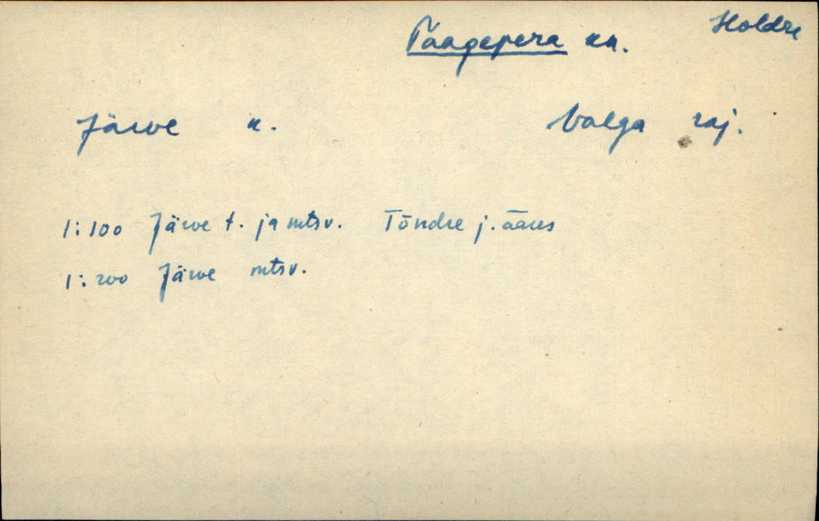 Taagepera kn. Holdre
Järve k. Valga raj.
1:100 Järve t. ja mtsv. Tõndre j. ääres
1:200 Järve mtsv.